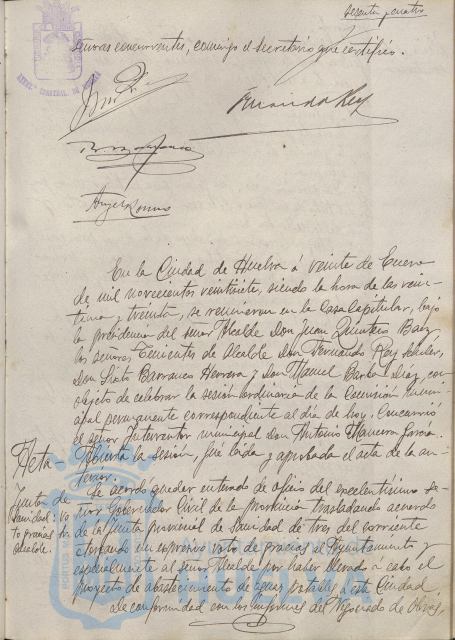 sesenta y cuatro
señores concurrentes, conmigo el Secretario que certifico.
Fernando Rey
En la Ciudad de Huelva á veinte de Enero
de mil novecientos veintisiete, siendo la hora de las vein-
tiuna y treinta, se reunieron en la Casa Capitular, bajo
la presidencia del señor Alcalde Don Juan Quintero Baez
los señores Tenientes de Alcalde Don Fernando Rey
Don Sixto Barranco Herrera y Don Manuel Barba Diaz, con
objeto de celebrar la sesión ordinaria de la Comisión muni-
cipal permanente correspondiente al día de hoy. Concurrió
el señor Interventor municipal Don Antonio García.
Acta - Abierta la sesión, fue leída y aprobada el acta de la an-
terior.
Junta de
Sanidad: vo
to gracias al
Alcalde.
Se acordó quedar enterado de oficio del excelentísimo se-
ñor Gobernador Civil de la provincia trasladando acuerdo
de la Junta provincial de Sanidad de tres del corriente
otorgando un expresivo voto de gracias al Ayuntamiento y
especialmente al señor Alcalde por haber llevado a cabo el
proyecto de abastecimiento de aguas potables a esta Ciudad.
De conformidad con los informes del Negociado de Obras,